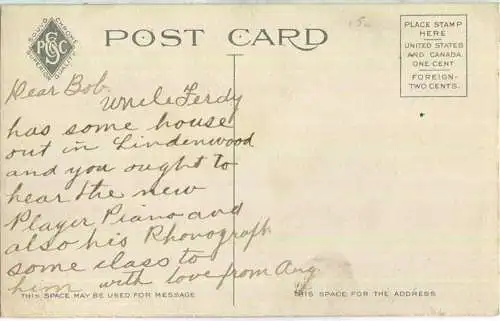 SOUND CHROME
PCSC
SUPERIOR QUALITY
POST CARD
15-
PLACE STAMP
HERE
UNITED STATES
AND CANADA
ONE CENT
FOREIGN-
TWO CENTS.
Dear Bob.
Uncle Ferdy
has some house
out in Lindenwood
and you ought to
hear the new
Player Piano and
also his Phonograph
some class to
him with love from Aug
THIS SPACE MAY BE USED FOR MESSAGE
THIS SPACE FOR THE ADDRESS.